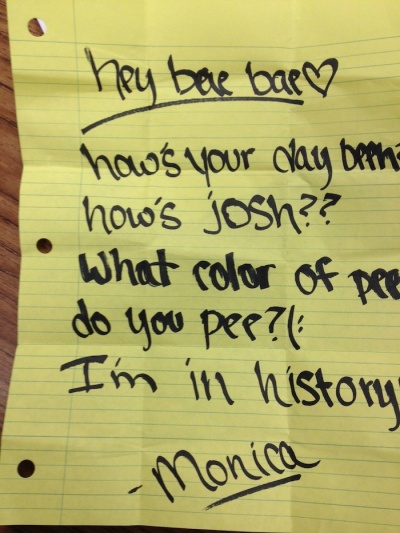 hey bae bae♡
how's your day been?
how's josh??
What color of pee
do you pee?(:
I'm in history
-Monica